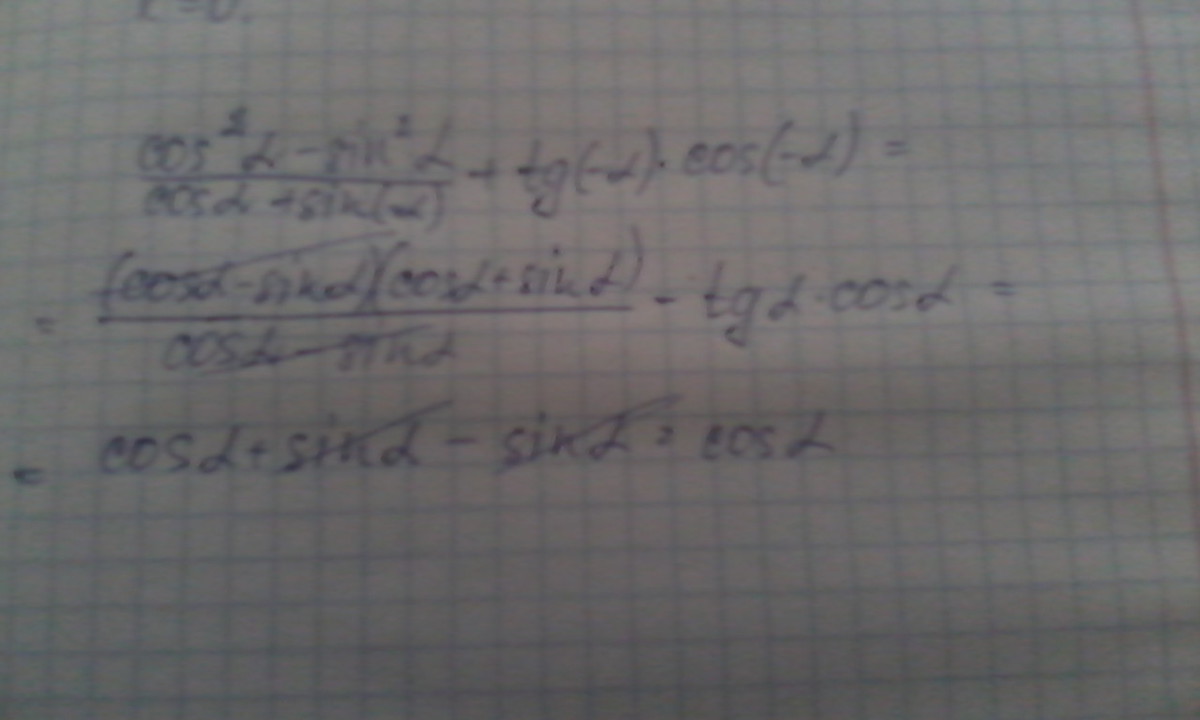 cos²α - sin²α / cosα + sin(-α) + tg(-α) · cos(-α) =
= (cosα - sinα)(cosα + sinα) / cosα - sinα - tgα · cosα =
= cosα + sinα - sinα = cosα